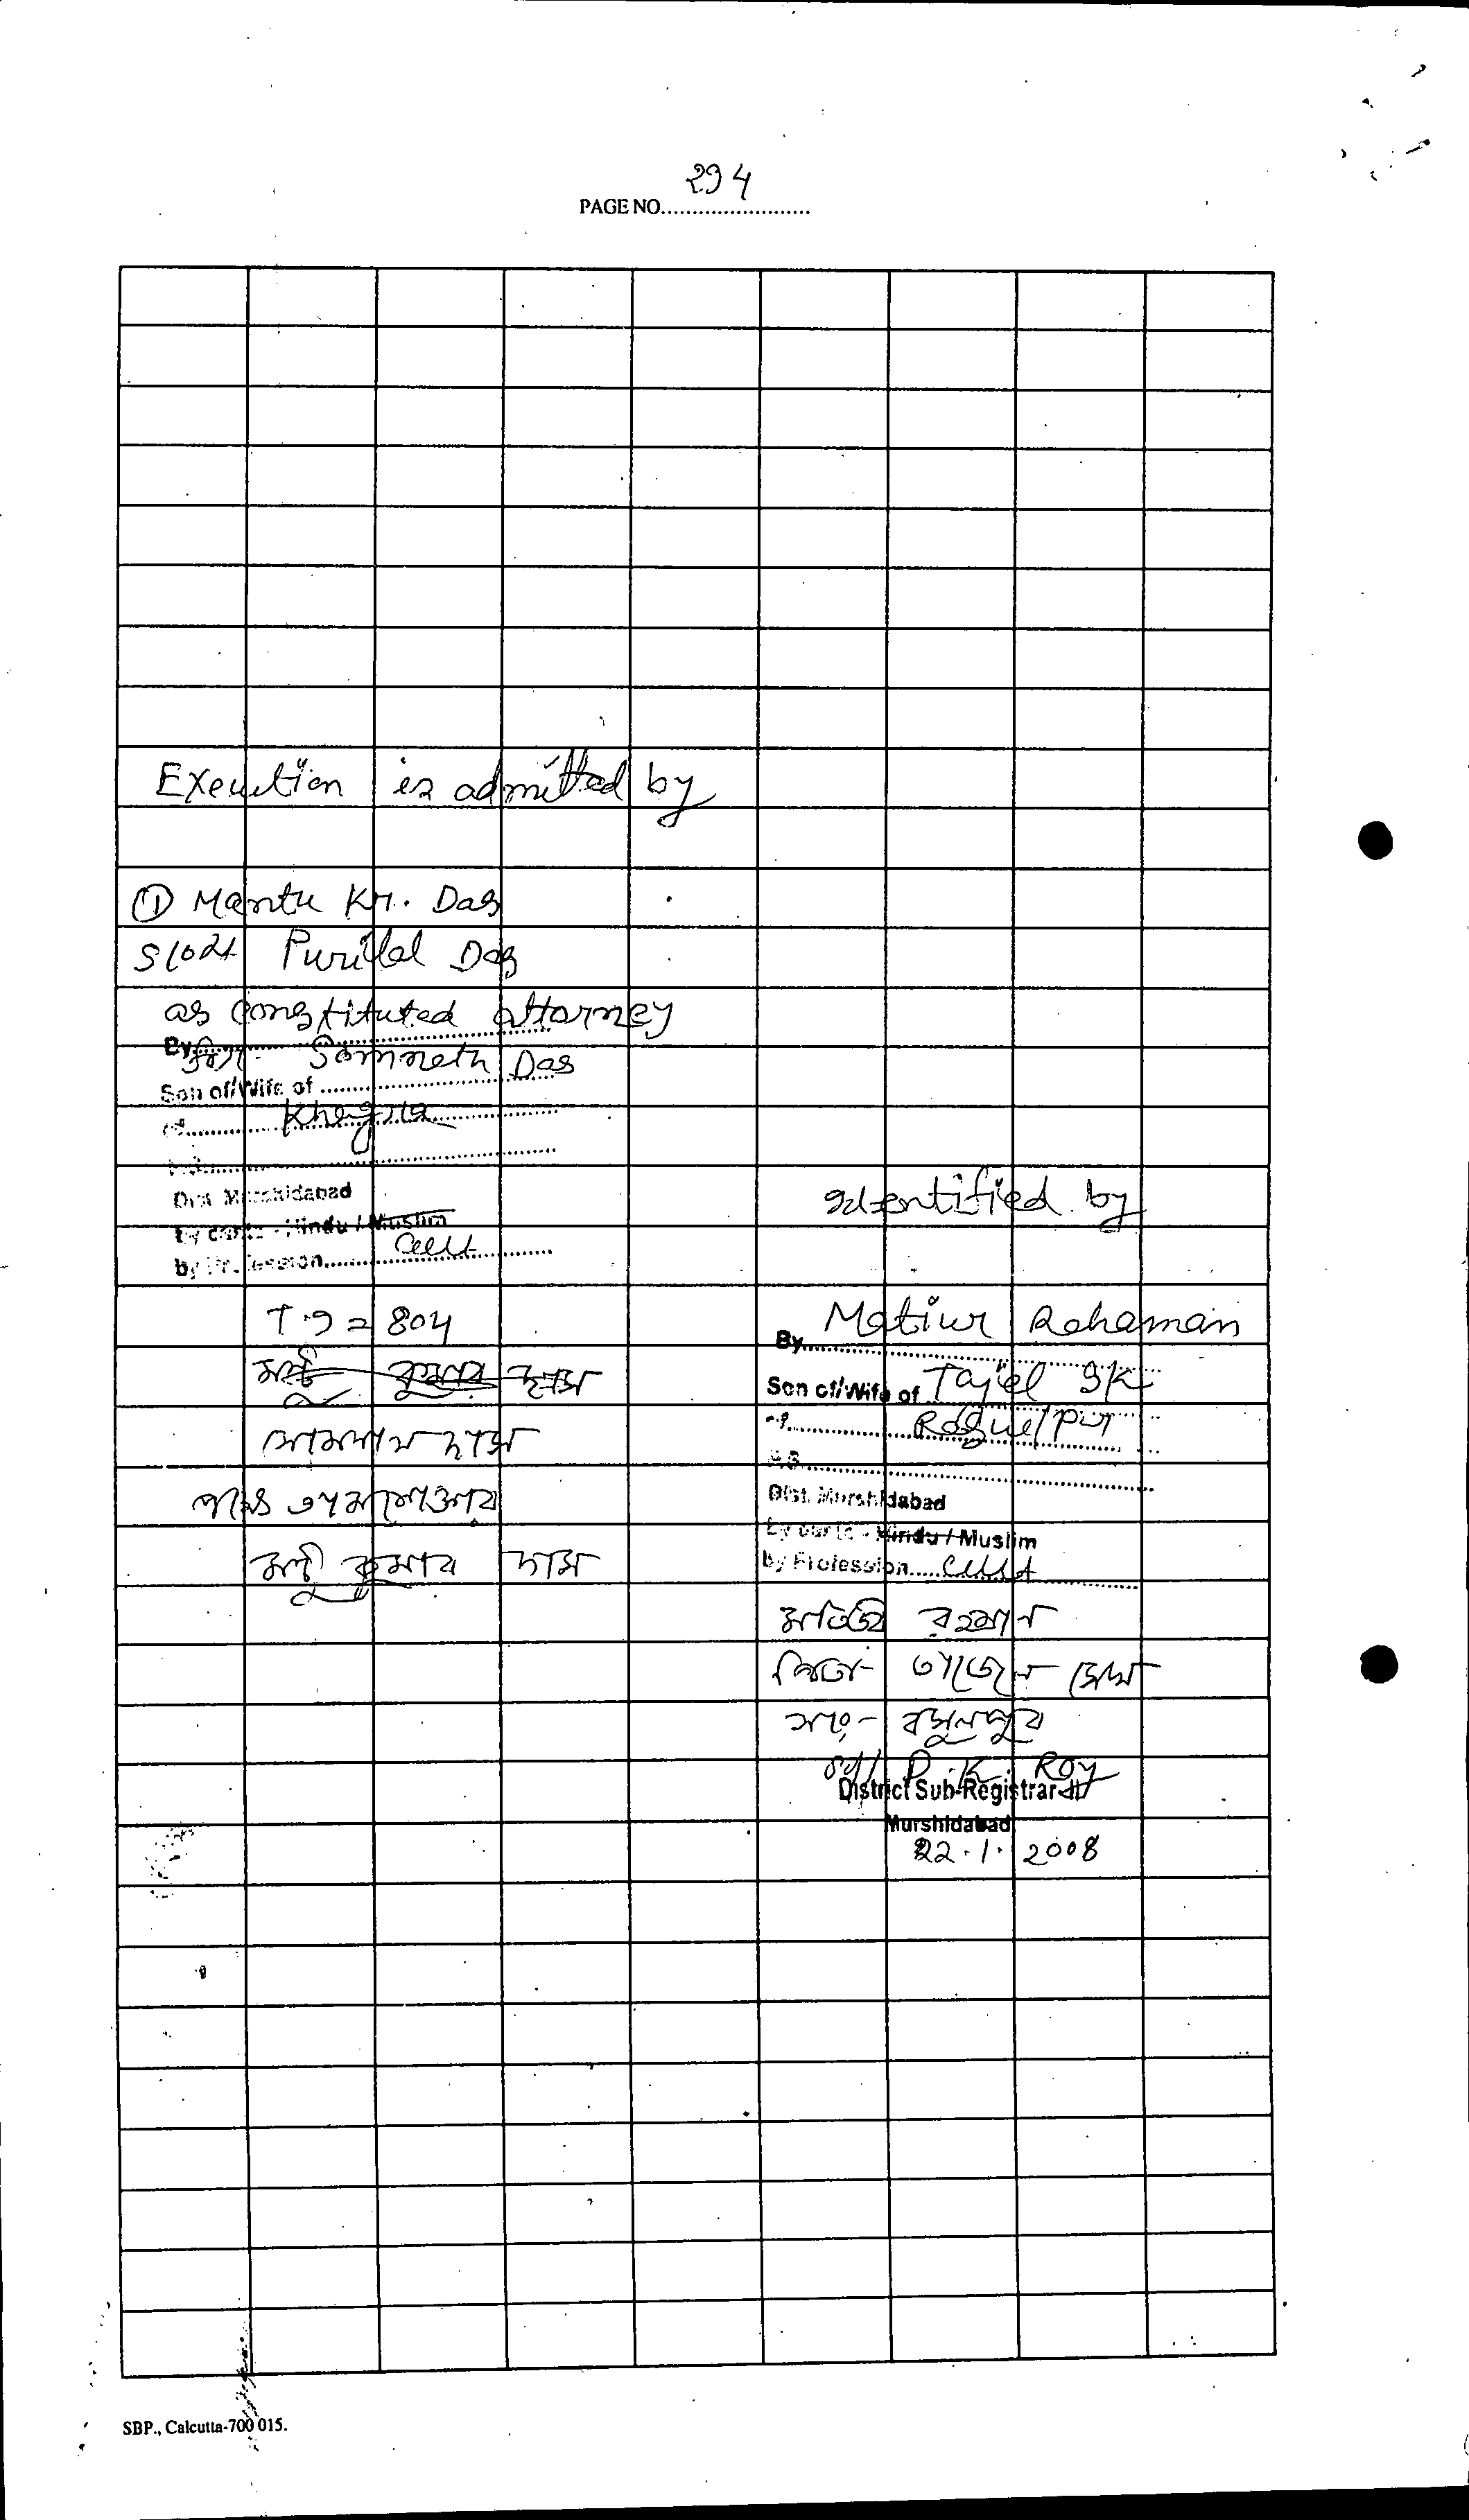 294
PAGE NO.
Execution is admitted by
① Mantu Kr. Das
S/o Lt Purilal Das
as constituted attorney
By for Somnath Das
Son of/Wife of
of Khagra
P.S.
Dist. Murshidabad
by caste - Hindu / Muslim
by Profession Cult
T.9 = 804
মন্টু কুমার দাস
সোমনাথ দাস
পক্ষে
মন্টু কুমার দাস
Identified by
By Matiur Rahaman
Son of/Wife of Tajel Sk
of Rasulpur
P.S.
Dist. Murshidabad
by caste - Hindu / Muslim
by Profession Cult
রহমান
পিতা- তাজেল সেখ
সাং- রসুলপুর
Sd/ P. K. Roy
District Sub-Registrar-II
Murshidabad
22.1.2008
SBP., Calcutta-700 015.